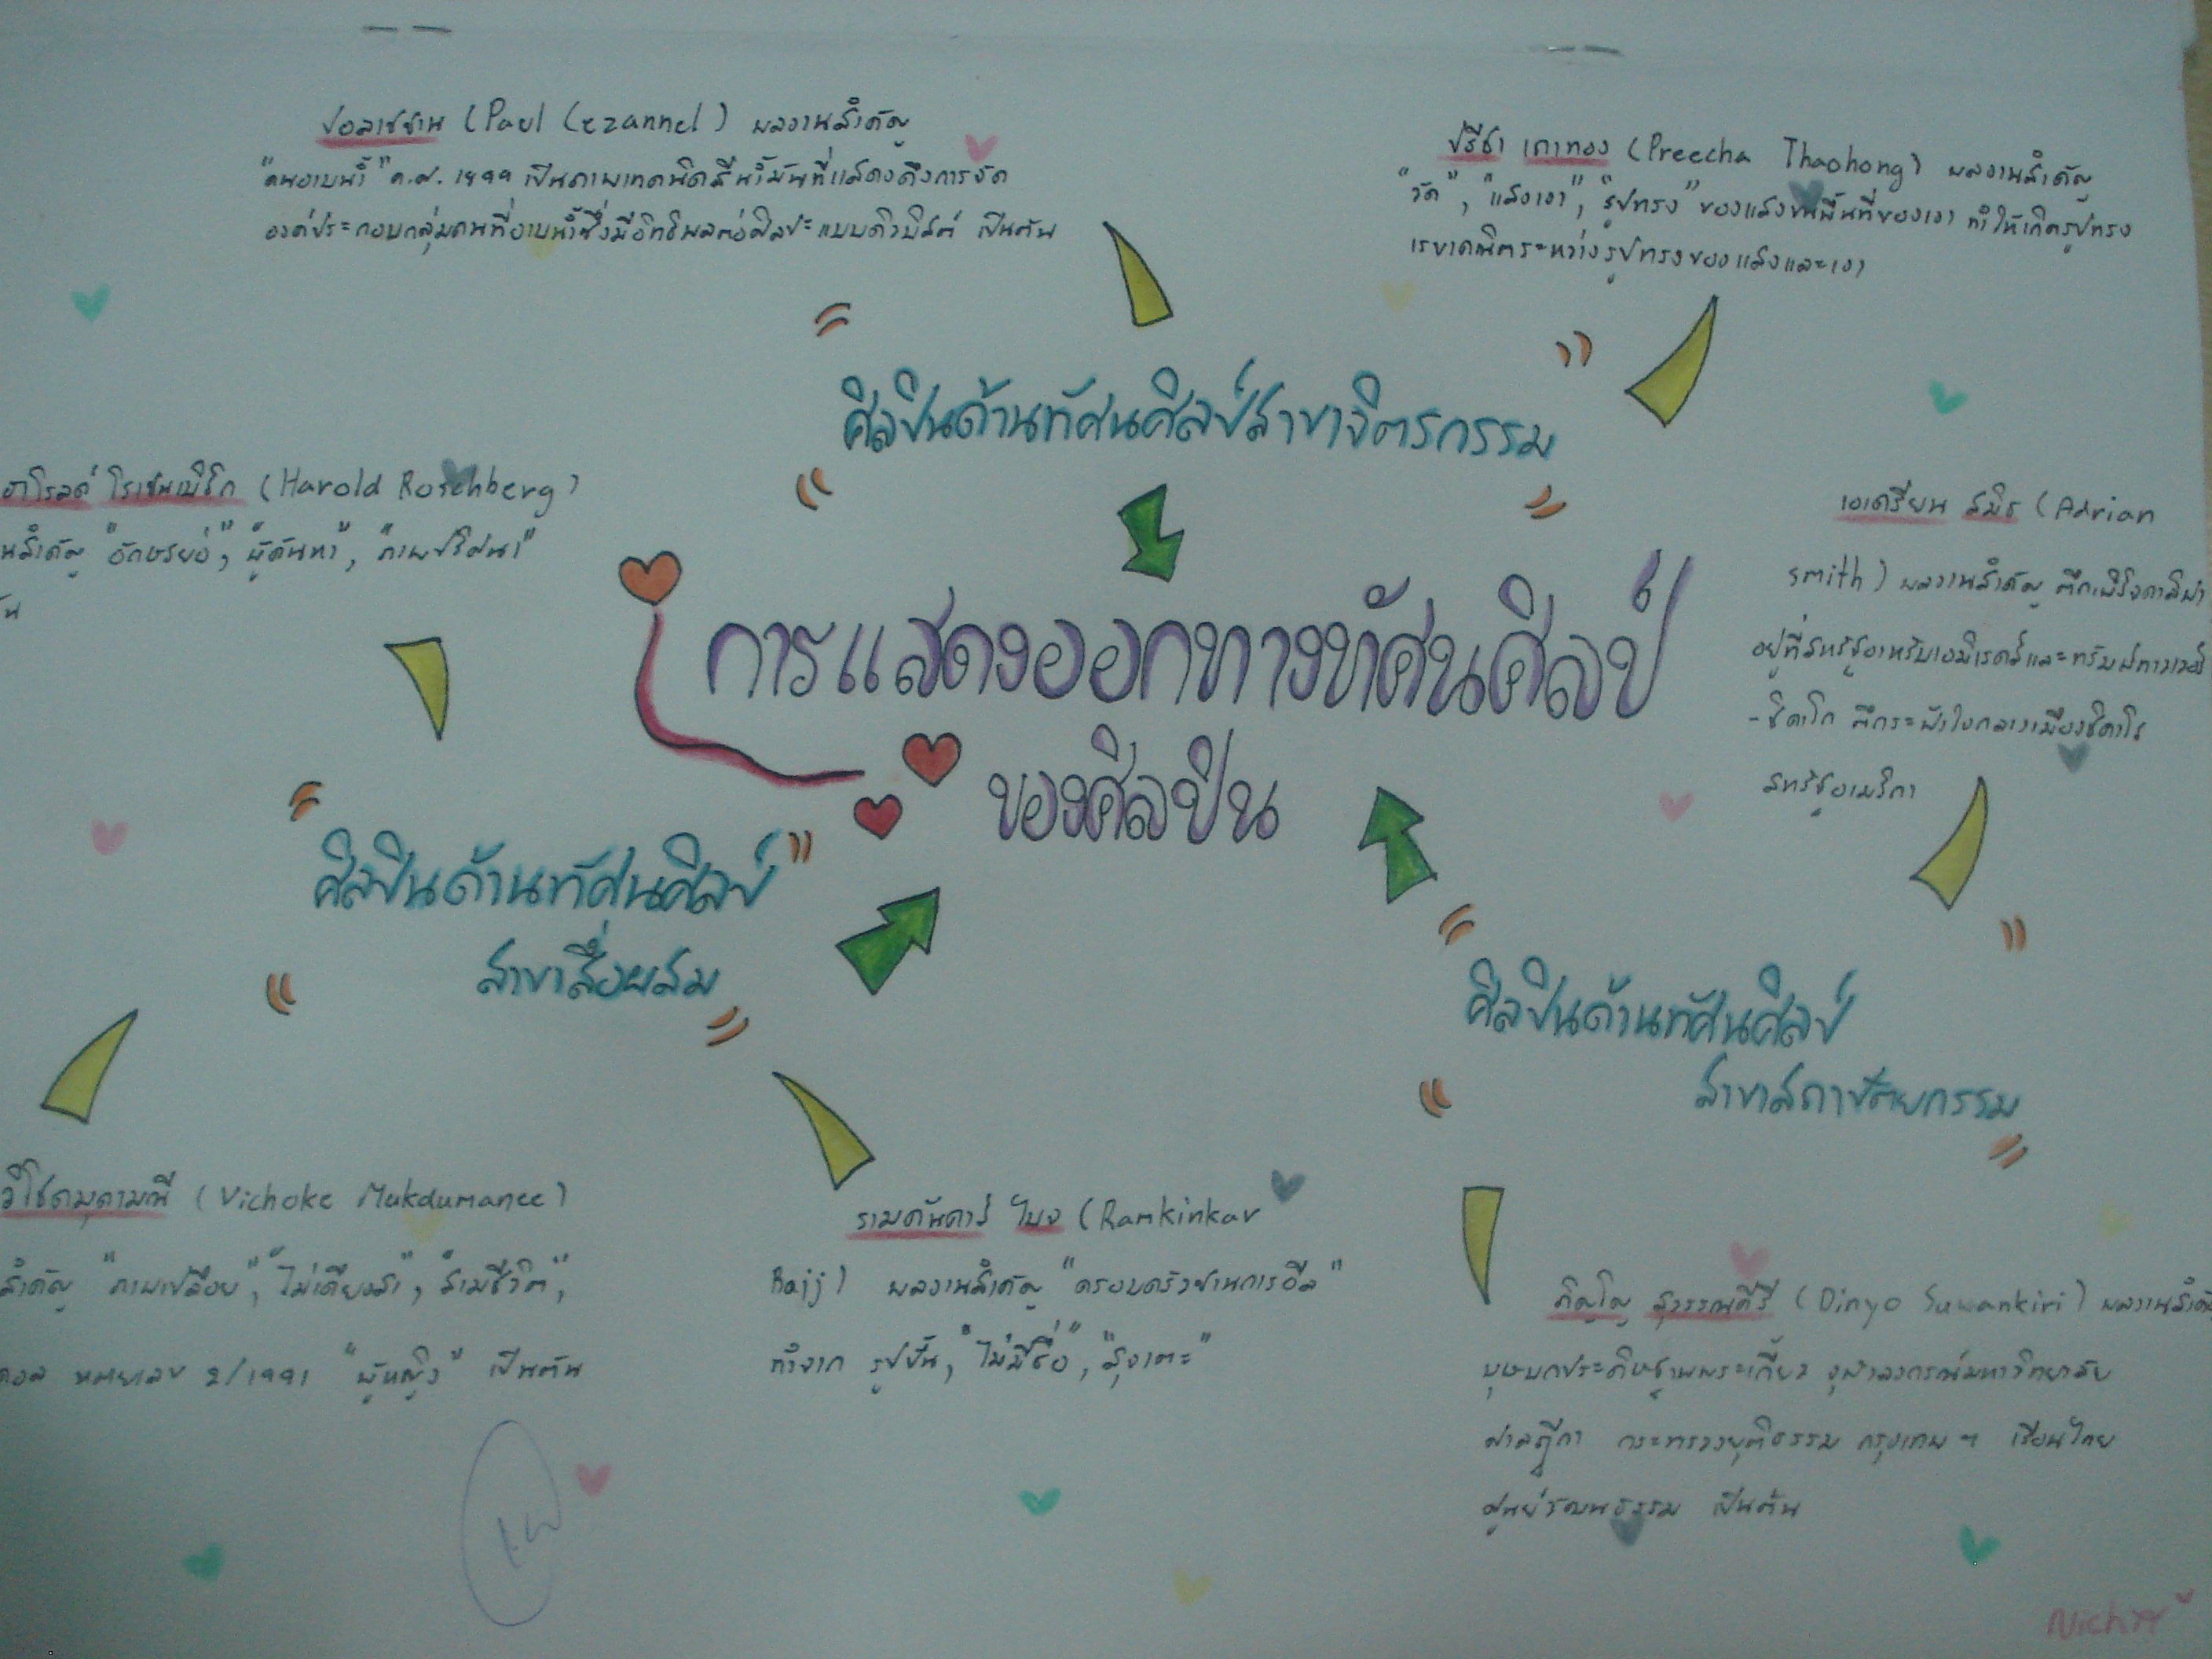 ปอลเซซาน (Paul Cezannel) ผลงานสำคัญ
"คนอาบน้ำ" ค.ศ. 1899 เป็นภาพเทคนิคสีน้ำมันที่แสดงถึงการจัด
องค์ประกอบกลุ่มคนที่อาบน้ำซึ่งมีอิทธิพลต่อศิลปะแบบคิวบิสต์ เป็นต้น
ปรีชา เถาทอง (Preecha Thaohong) ผลงานสำคัญ
"วัด", "แสงเงา", "รูปทรง" ของแสงบนพื้นที่ของเงา ทำให้เกิดรูปทรง
เรขาคณิตระหว่างรูปทรงของแสงและเงา
ศิลปินด้านทัศนศิลป์สาขาจิตรกรรม
ฮาโรลด์ โรเซนเบิร์ก (Harold Rosenberg)
นสำคัญ "อักษรย่อ", "ผู้ค้นหา", "ภาพปริศนา"
การแสดงออกทางทัศนศิลป์
ของศิลปิน
เอเดรียน สมิธ (Adrian
smith) ผลงานสำคัญ ตึกเบิร์จคาลิฟา
อยู่ที่สหรัฐอาหรับเอมิเรตส์และทรัมป์ทาวเวอร์
-ชิคาโก ตึกระฟ้าใจกลางเมืองชิคาโร
สหรัฐอเมริกา
ศิลปินด้านทัศนศิลป์
สาขาสื่อผสม
ศิลปินด้านทัศนศิลป์
สาขาสถาปัตยกรรม
วิโชคมุกดามณี (Vichoke Mukdumanee)
สำคัญ "ภาพเปลือย", "ไม่เดียงสา", "สามชีวิต",
หมายเลข 2/1991 "ผู้หญิง" เป็นต้น
รามคินคาร์ ไบจ (Ramkinkar
Baij) ผลงานสำคัญ "ครอบครัวซานการอีล"
ทำจาก รูปปั้น, "ไม่มีชื่อ", "สุจาตะ"
ภิญโญ สุวรรณคีรี (Pinyo Suwankiri) ผลงานสำคั
บุษบกประดิษฐานพระเกี้ยว จุฬาลงกรณ์มหาวิทยาลัย
ศาลฎีกา กระทรวงยุติธรรม กรุงเทพฯ เรือนไทย
ศูนย์วัฒนธรรม เป็นต้น
Nichx